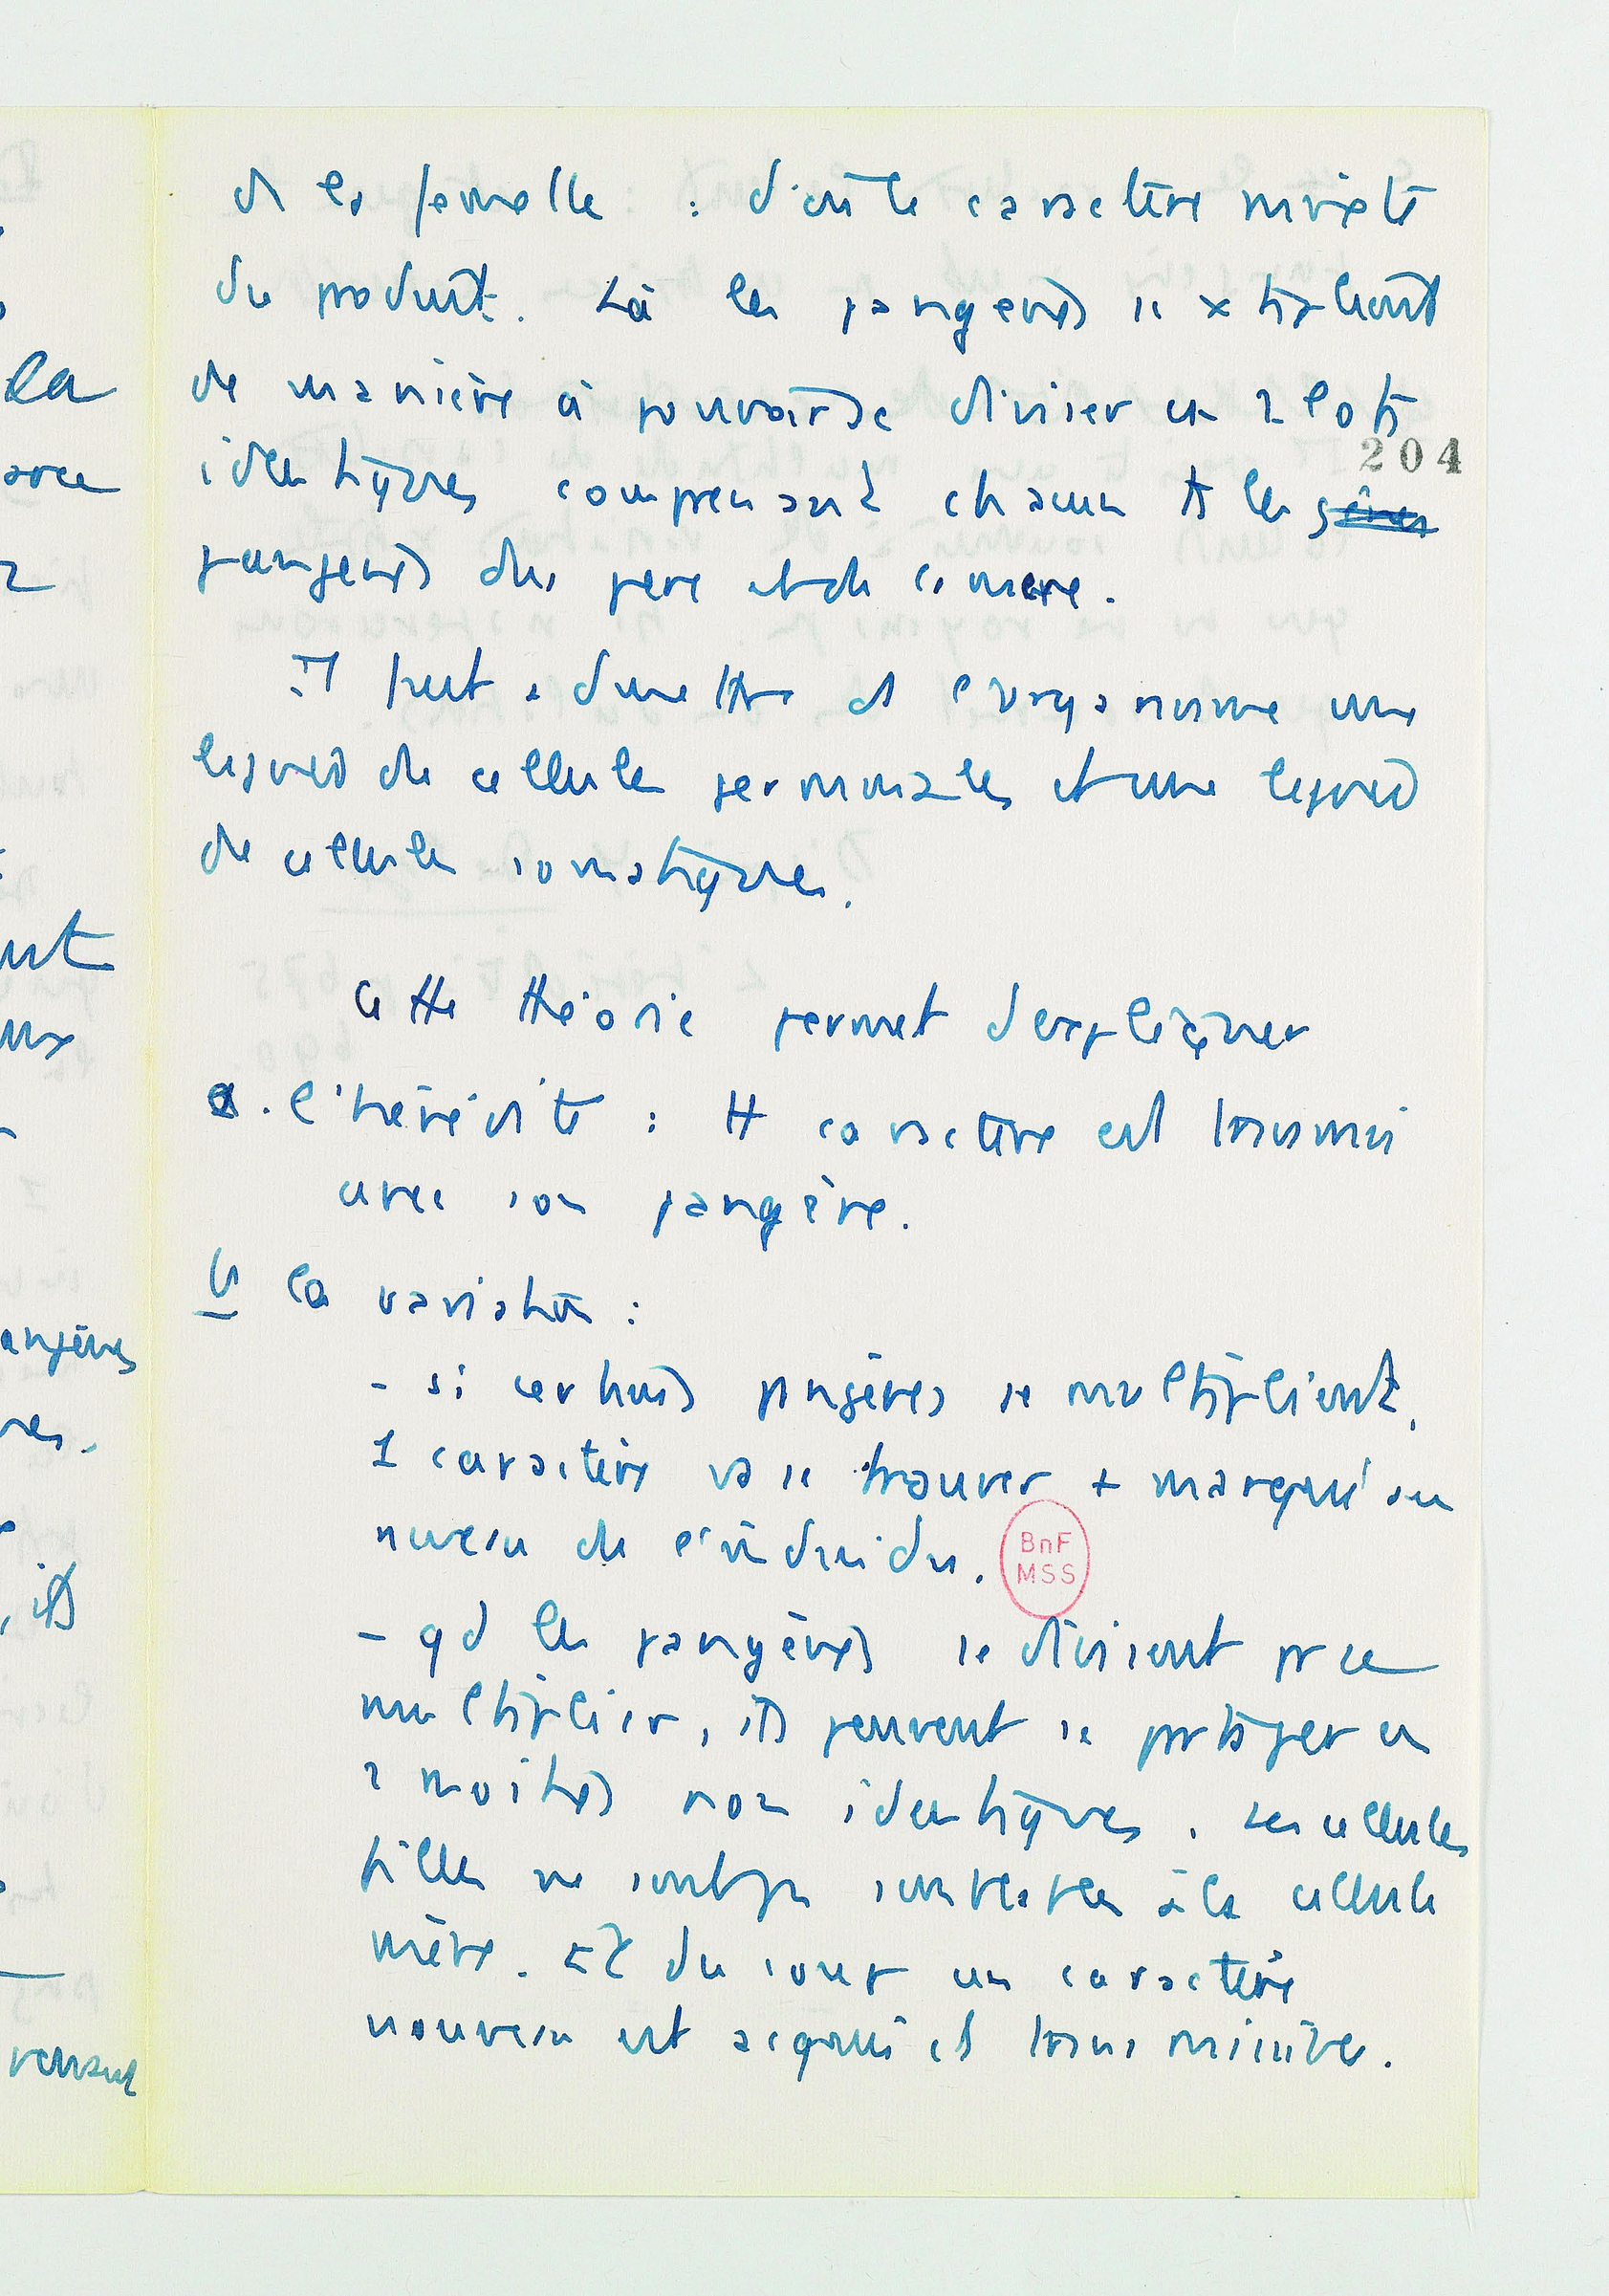 ds la femelle : d'où le caractère mixte
du produit. Là les pangènes se x tiplient
de manière à pouvoir se diviser en 2 lots
identiques comprenant chacun ts les gènes
204
pangènes du père et de la mère.
Il faut admettre ds l'organisme une
lignée de cellules germinales et une lignée
de cellules somatiques.
Cette théorie permet d'expliquer
a. l'hérédité : tt caractère est transmis
avec son pangène.
b la variation :
- si certains pangènes se multiplient,
1 caractère va se trouver + marqué au
niveau de l'individu.
BnF
MSS
- qd les pangènes se divisent pr se
multiplier, ils peuvent se partager en
2 moitiés non identiques. Les cellules
filles ne sont pas semblables à la cellule
mère. Et du coup un caractère
nouveau est acquis et transmissible.
la
avec
2
ut
ux
angènes
res.
, ils